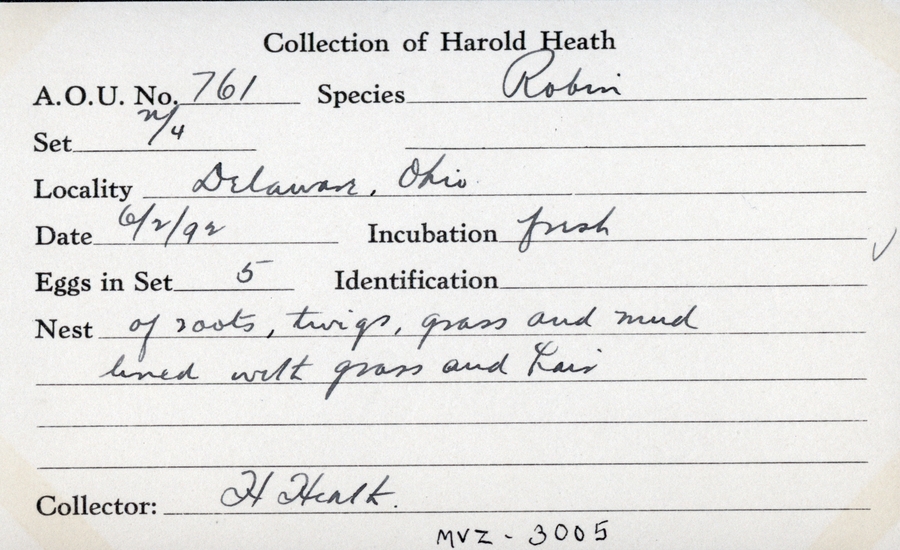 Collection of Harold Heath
A.O.U. No. 761 Species Robin
Set n/4
Locality Delaware, Ohio
Date 6/2/92 Incubation fresh
Eggs in Set 5 Identification
Nest of roots, twigs, grass and mud
lined with grass and hair
Collector: H Heath.
MVZ - 3005